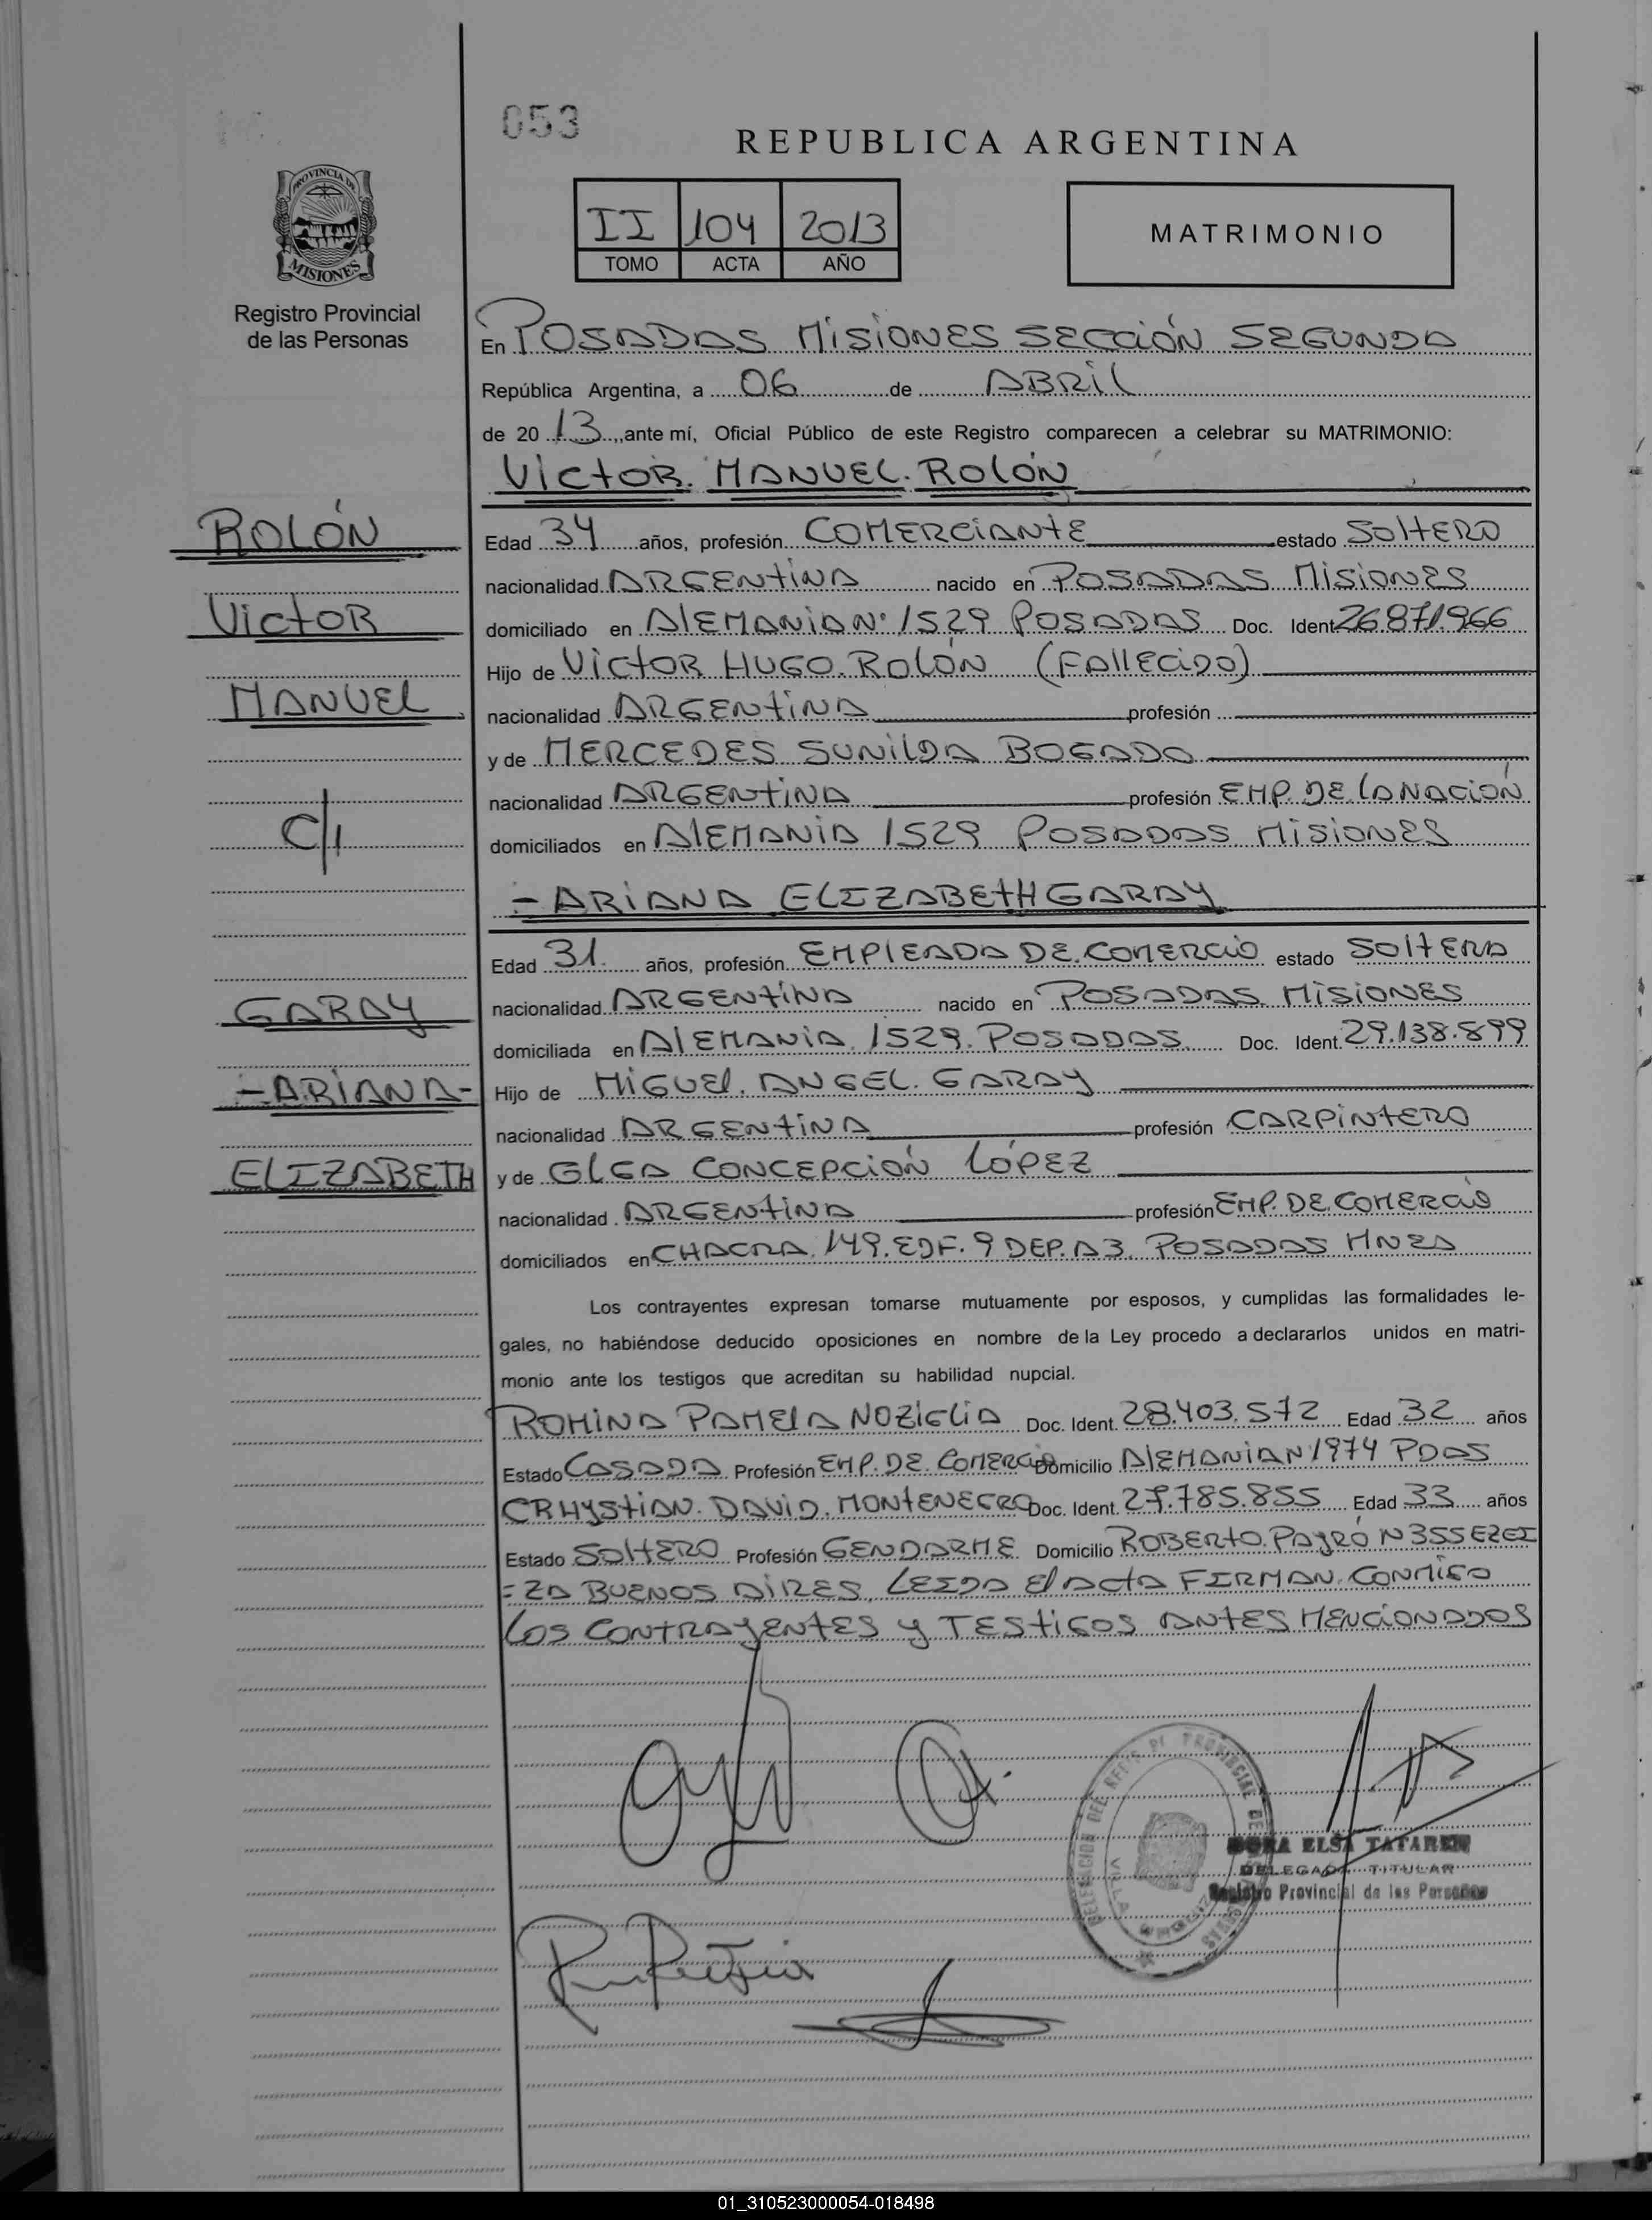 053
REPUBLICA ARGENTINA
PROVINCIA DE
MISIONES
II 104 2013
TOMO ACTA AÑO
MATRIMONIO
Registro Provincial
de las Personas
En POSADAS MISIONES SECCIÓN SEGUNDA
República Argentina, a 06 de ABRIL
de 20 13, ante mí, Oficial Público de este Registro comparecen a celebrar su MATRIMONIO:
VICTOR. MANUEL. ROLÓN
ROLÓN
VICTOR
MANUEL
C/1
Edad 34 años, profesión COMERCIANTE estado SOLTERO
nacionalidad ARGENTINA nacido en POSADAS MISIONES
domiciliado en ALEMANIA Nº 1529 POSADAS Doc. Ident 26.871.966
Hijo de VICTOR HUGO. ROLÓN (FALLECIDO)
nacionalidad ARGENTINA profesión
y de MERCEDES SUNILDA BOGADO
nacionalidad ARGENTINA profesión EMP. DE. LA NACIÓN
domiciliados en ALEMANIA 1529 POSADAS MISIONES
- ARIANA ELIZABETH GARAY
GARAY
- ARIANA -
ELIZABETH
Edad 31. años, profesión EMPLEADA DE. COMERCIO estado SOLTERA
nacionalidad ARGENTINA nacido en POSADAS. MISIONES
domiciliada en ALEMANIA. 1529. POSADAS. Doc. Ident. 29.138.899
Hijo de MIGUEL. ANGEL. GARAY
nacionalidad ARGENTINA profesión CARPINTERO
y de GLGA CONCEPCIÓN LÓPEZ
nacionalidad ARGENTINA profesión EMP. DE. COMERCIO
domiciliados en CHACRA. 149. EDF. 9 DEP. A3. POSADAS MNES
Los contrayentes expresan tomarse mutuamente por esposos, y cumplidas las formalidades le-
gales, no habiéndose deducido oposiciones en nombre de la Ley procedo a declararlos unidos en matri-
monio ante los testigos que acreditan su habilidad nupcial.
ROMINA PAMELA NOZIGLIA Doc. Ident. 28.403.572 Edad 32 años
Estado CASADA Profesión EMP. DE. COMERCIO Domicilio ALEMANIA N 1974 PDAS
CRHYSTIAN. DAVID. MONTENEGRO Doc. Ident. 27.785.855 Edad 33 años
Estado SOLTERO Profesión GENDARME Domicilio ROBERTO. PAYRÓ N 355 EZEI
=ZA BUENOS AIRES. LEIDA EL ACTA FIRMAN. CONMIGO
LOS CONTRAYENTES Y TESTIGOS ANTES MENCIONADOS
ELSA TATAREN
DELEGADA TITULAR
Registro Provincial de las Personas
01_310523000054-018498